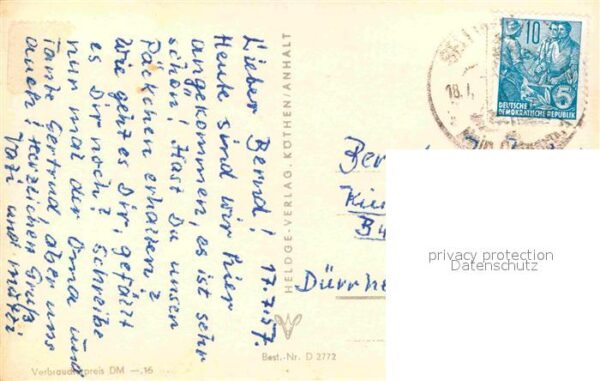 Lieber Bernd! 17.7.57.
Heute sind wir hier
angekommen, es ist sehr
schön! Hast Du unser
Päckchen erhalten?
Wie geht es Dir, gefällt
es Dir noch? Schreibe
nur mal der Oma und
Tante Gertrud, aber uns
auch! Herzlichen Gruß
Vati und Mutti
HELDGE-VERLAG, KÖTHEN/ANHALT
Best.-Nr. D 2772
Verbraucherpreis DM —.16
10
5
DEUTSCHE
DEMOKRATISCHE REPUBLIK
18.7.
Dürrhe
privacy protection
Datenschutz